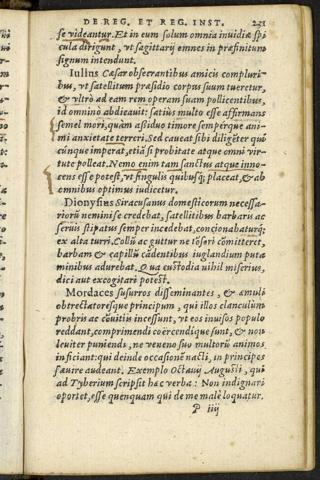 DE REG. ET REG. INST. 231
se videantur. Et in eum solum omnia invidiæ spi
cula dirigunt, vt sagittarij omnes in præfinitum
signum intendunt.
Iulius Cæsar obsecrantibus amicis compluri-
bus, vt satellitum præsidio corpus suum tueretur,
& vltrò ad eam rem operam suam pollicentibus,
id omninò abdicauit: satiùs multo esse affirmans
semel mori, quàm assiduo timore semperque ani-
mi anxietate terreri. Sed caueat sibi diligẽter qui
cúnque imperat, etiã si probitate atque omni vir-
tute polleat. Nemo enim tam sanctus atque inno-
cens esse potest, vt singulis quibusq; placeat, & ab
omnibus optimus iudicetur.
Dionysius Siracusanus domesticorum necessa-
riorũ nemini se credebat, satellitibus barbaris ac
seruis stipatus semper incedebat, conçionabaturq;
ex alta turri. Collũ ac guttur ne tõsori cõmitteret,
barbam & capillũ cãdentibus iuglandium puta
minibus adurebat. Qua custodia nihil miserius,
dici aut excogitari potest.
Mordaces susurros disseminantes, & æmuli
obtrectatoresque principum, qui illos clanculùm
probris ac cõuitiis incessunt, vt eos inuisos populo
reddant, comprimendi coërcendique sunt, & non
leuiter puniends, ne veneno suo multorũ animos
inficiant: qui deinde occasionẽ nacti, in principes
sæuire audeant. Exemplo Octauij Augusti, qui
ad Tyberium scripsit hæc verba: Non indignari
oportet, esse quenquam qui de me malè loquatur.
P iiij